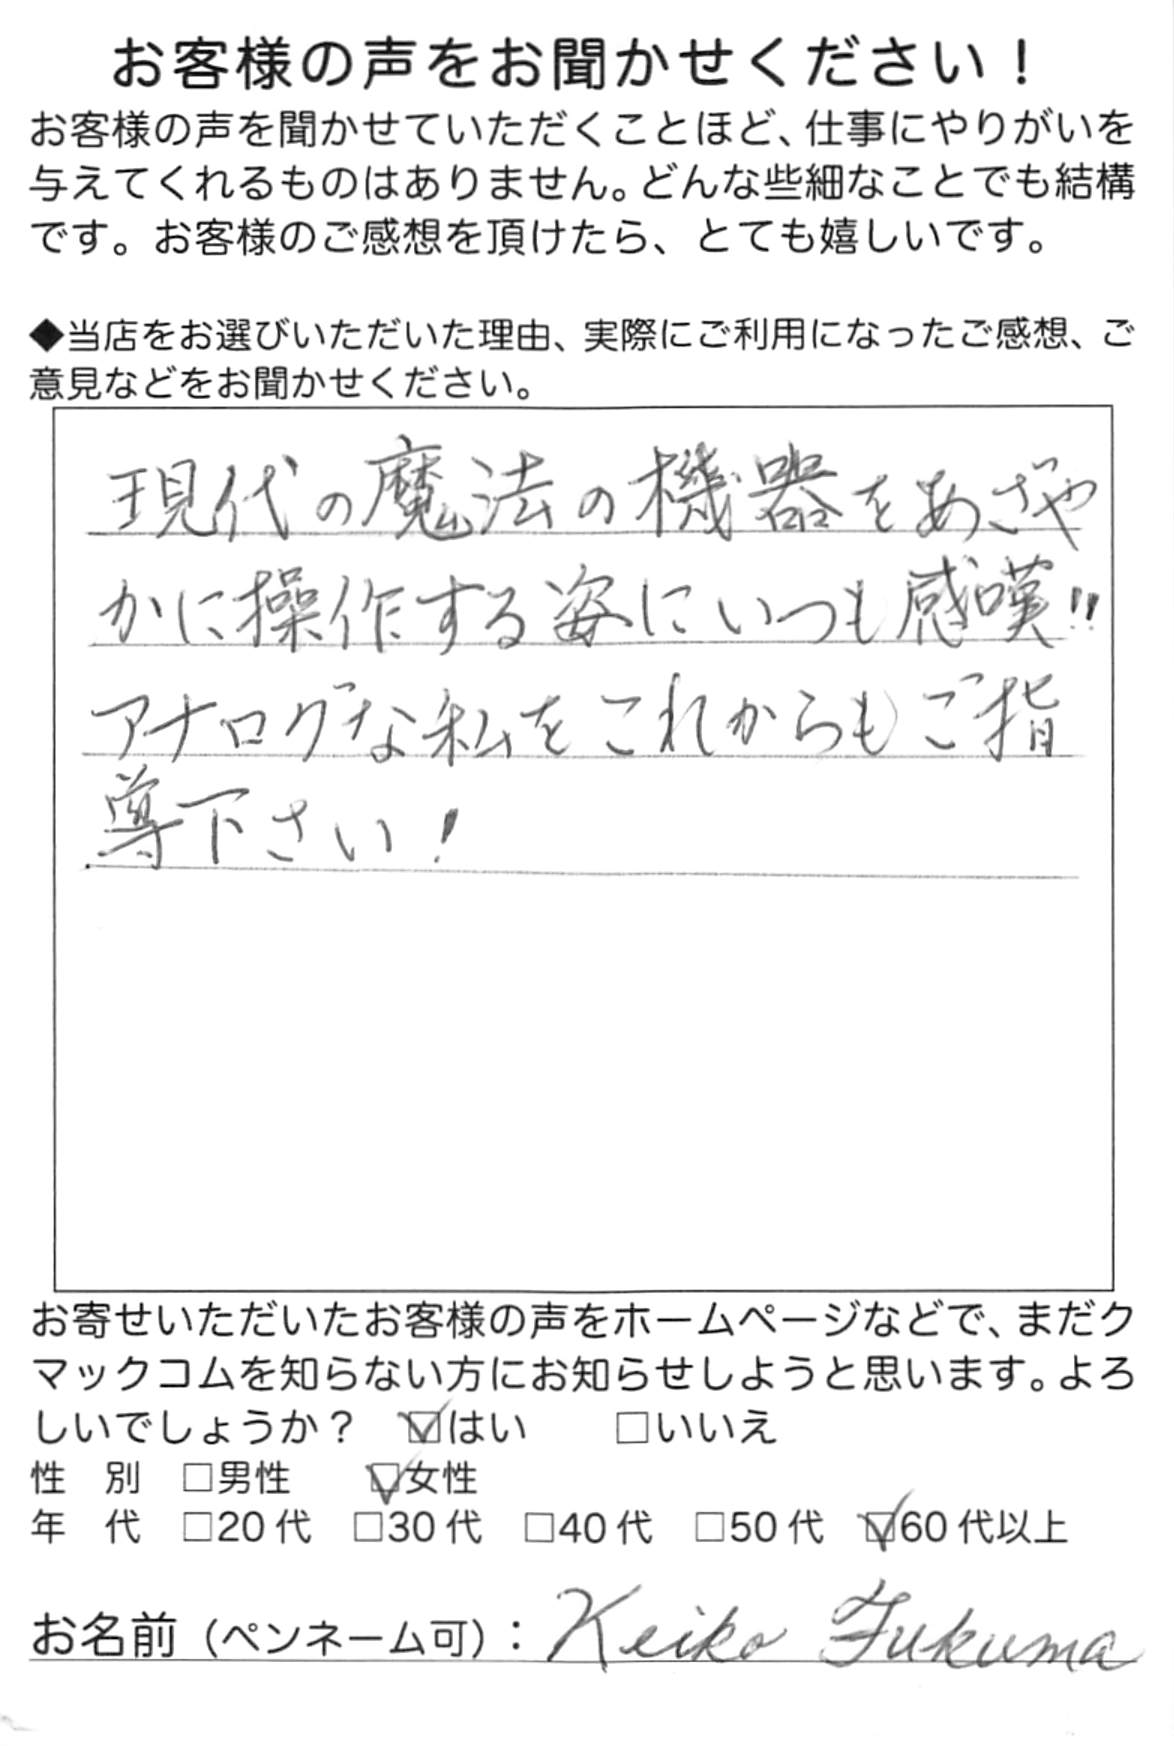 お客様の声をお聞かせください！
お客様の声を聞かせていただくことほど、仕事にやりがいを
与えてくれるものはありません。どんな些細なことでも結構
です。お客様のご感想を頂けたら、とても嬉しいです。
◆当店をお選びいただいた理由、実際にご利用になったご感想、ご
意見などをお聞かせください。
現代の魔法の機器をあざや
かに操作する姿にいつも感嘆!!
アナログな私をこれからもご指
導下さい！
お寄せいただいたお客様の声をホームページなどで、まだク
マックコムを知らない方にお知らせしようと思います。よろ
しいでしょうか？ ☑はい □いいえ
性 別 □男性 ☑女性
年 代 □20代 □30代 □40代 □50代 ☑60代以上
お名前（ペンネーム可）：Keiko Fukuma